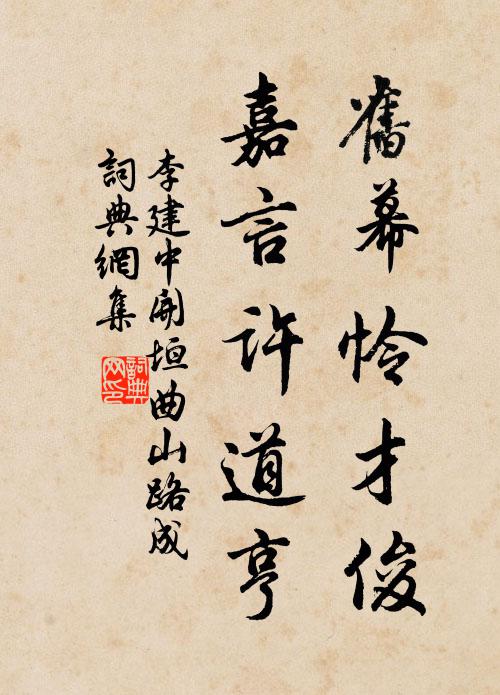 舊幕怜才俊
嘉言许道亨
李建中開垣曲山路成
詞典網集
詞典
网印